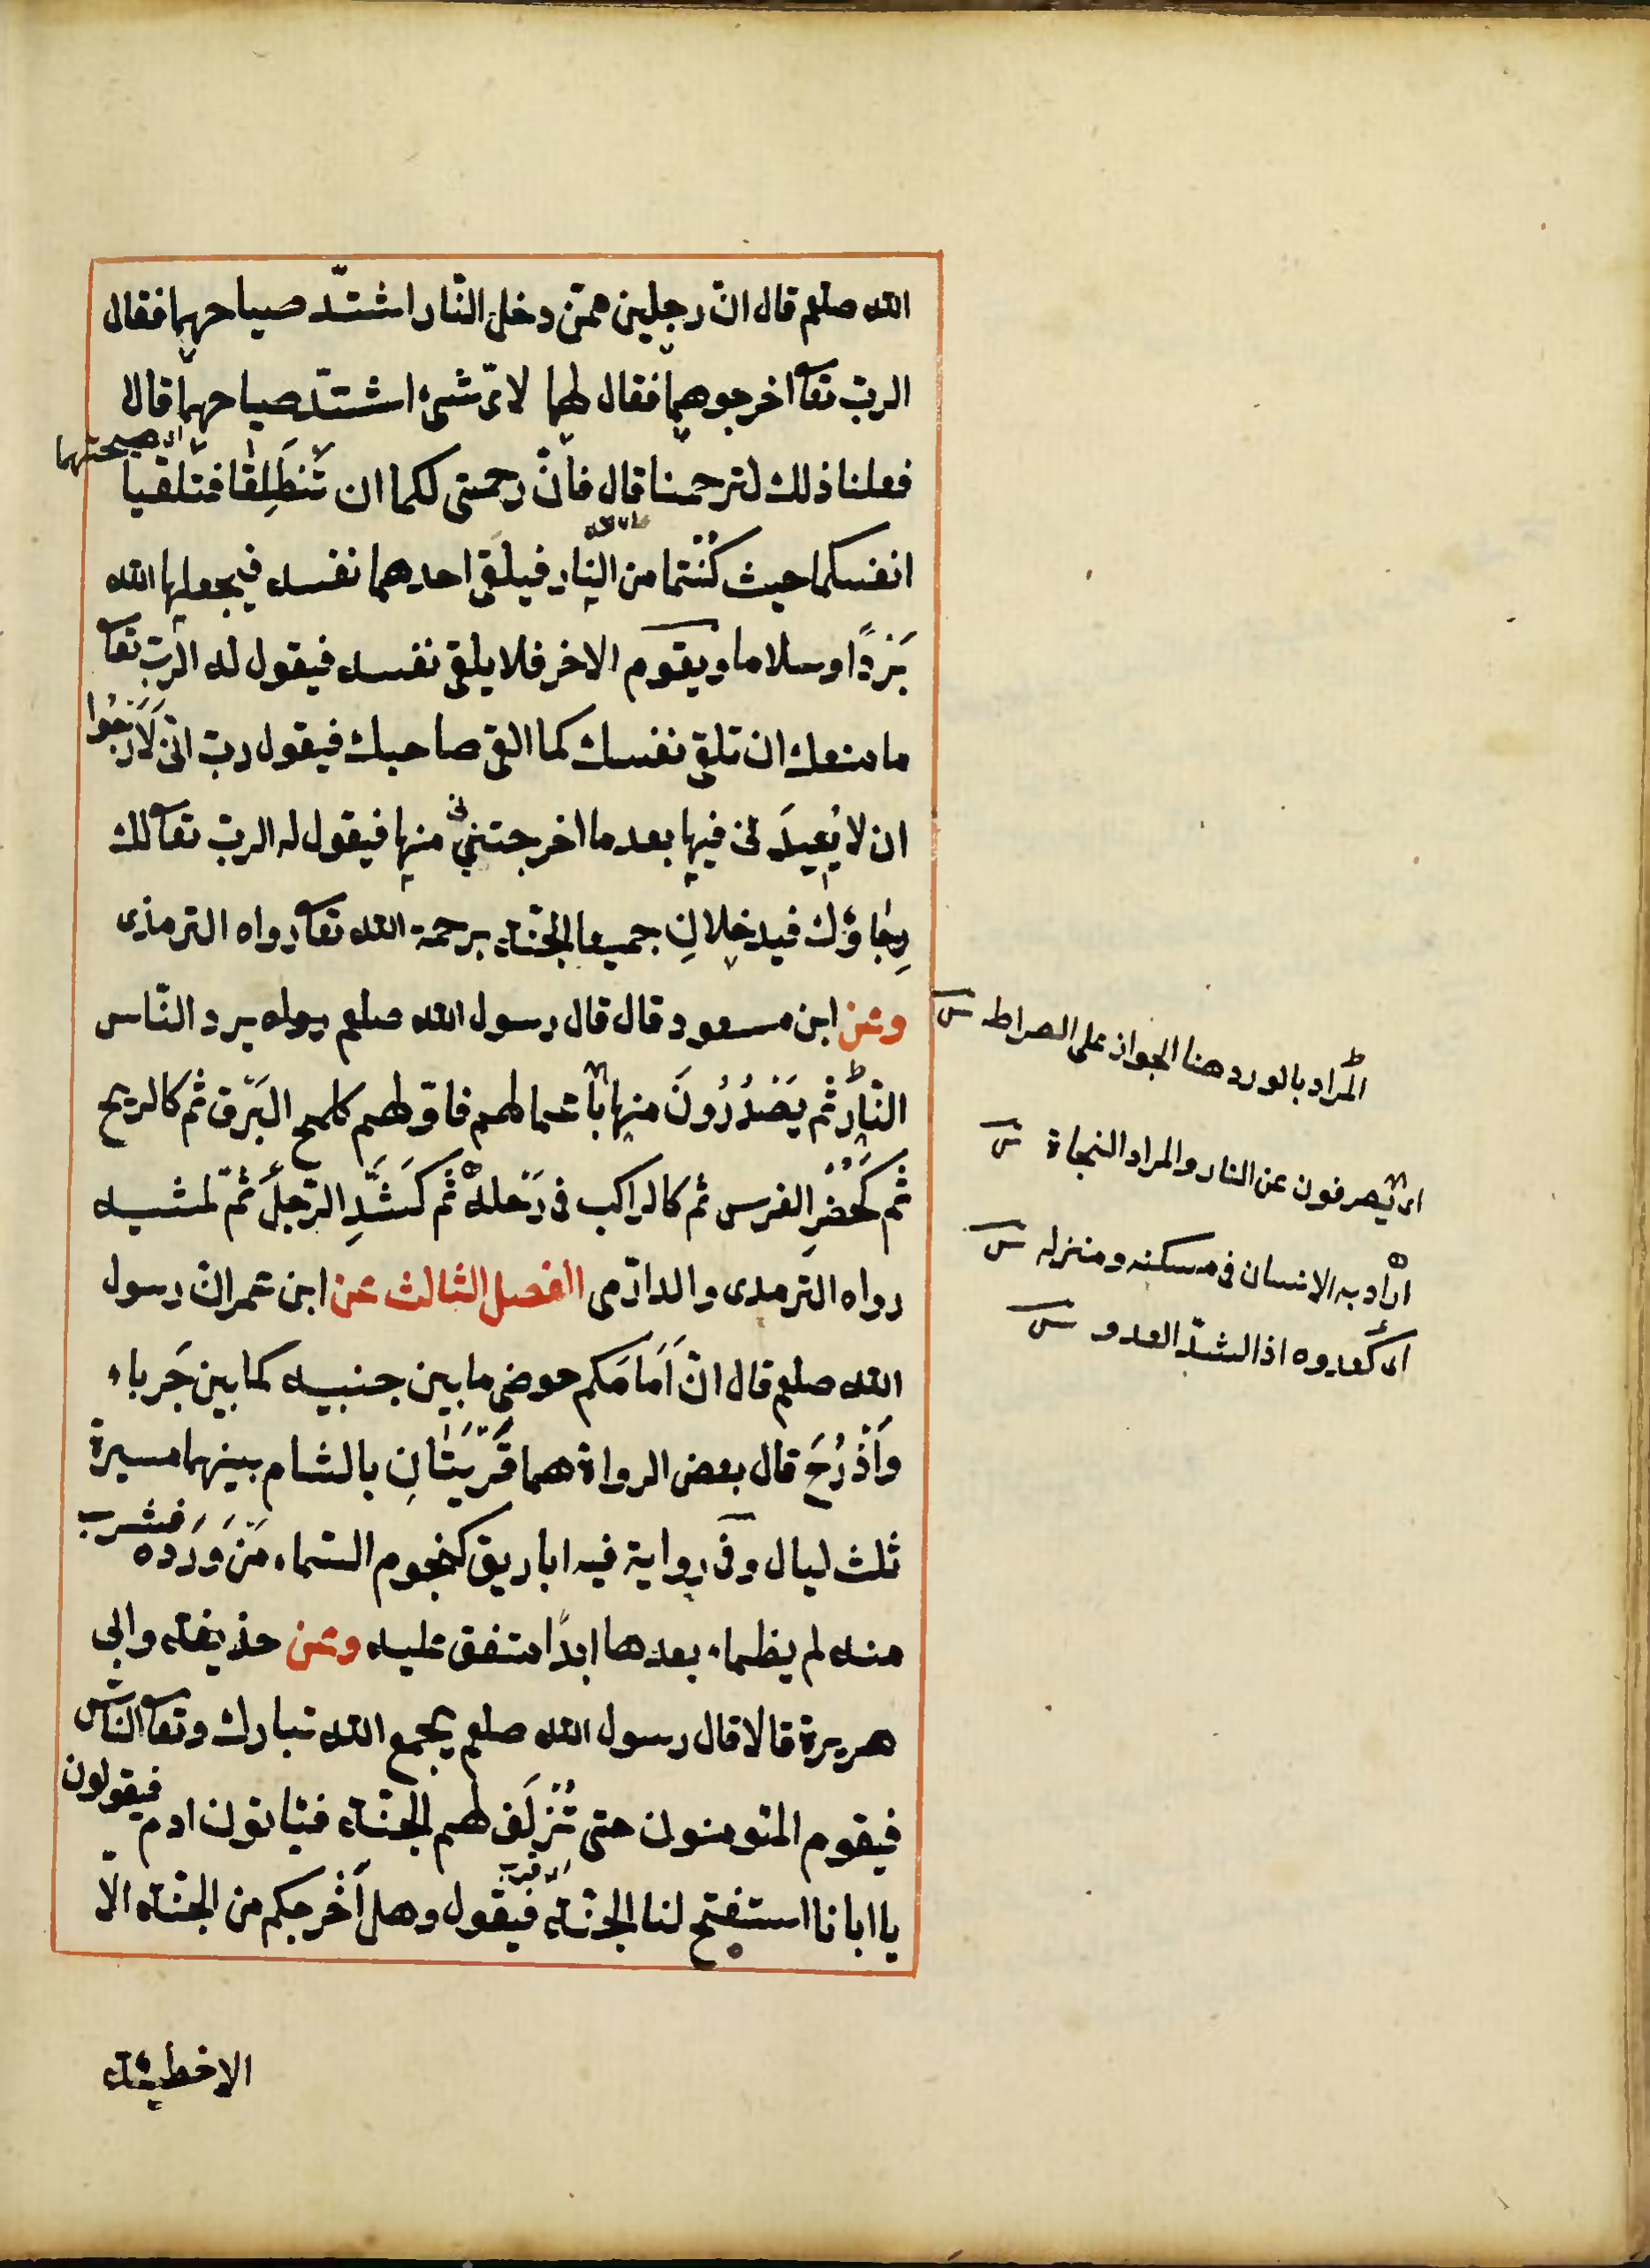 الله صلعم قال انّ رجلين ممّن دخل النّار اشتدّ صياحهما فقال
الربّ تعا اخرجوهما فقال لهما لايّ شيء اشتدّ صياحهما قالا
فعلنا ذلك لترحمنا قال فانّ رحمتي لكما ان تَنْطَلِقا فتلقيا
انفسكما حيث كُنْتما من النّار فيلقي احدهما نفسه فيجعلها الله
بَرْدًا وسلاما ويقوم الاخر فلا يلقي نفسه فيقول له الربّ تعا
ما منعك ان تلقي نفسك كما القى صاحبك فيقول ربّ انّي لَاَرْجُوا
ان لا تُعِيدَني فيها بعد ما اخرجتني منها فيقول له الربّ تعا لك
رِجَاؤك فيدخلانِ جميعا الجنّة برحمة الله تعا رواه الترمذي
وعن ابن مسعود قال قال رسول الله صلعم يرد النّاس
النّار ثم يَصْدُرُونَ منها باعمالهم فاوّلهم كلمح البَرْق ثم كالريح
ثم كَحُضْرِ الفرس ثم كالراكب في رَحْله ثم كَشَدِّ الرّجل ثمّ كمشيه
رواه الترمدي والدارمي الفصل الثالث عن ابن عمر انّ رسول
الله صلعم قال انّ اَمَامَكم حوضي ما بين جنبيه كما بين جَرباء
وَاَذْرُحَ قال بعض الرواة هما قَرْيَتَانِ بالشام بينهما مسيرة
ثلث ليال وفي رواية فيه اباريق كنجوم السّماء مَنْ وَرَدَه فشرب
منه لم يظماء بعدها ابدًا متفق عليه وعن حذيفة وابي
هريرة قالا قال رسول الله صلعم يجمع الله تبارك وتعا النّاس
فيقوم المؤمنون حتى تُزْلَفَ لهم الجنّة فياتون ادم فيقولون
يا ابانا استفتح لنا الجنّة فيقول وهل اَخْرجكم من الجنّة الّا
الاخطيئة
اي صيحتهما
اي قرب
المراد بالورد هنا الجواز على الصراط س
اي يصرفون عن النار والمراد النجاة س
اراد به الانسان في مسكنه ومنزله س
اي كعدوه اذ الشدّ العدو س